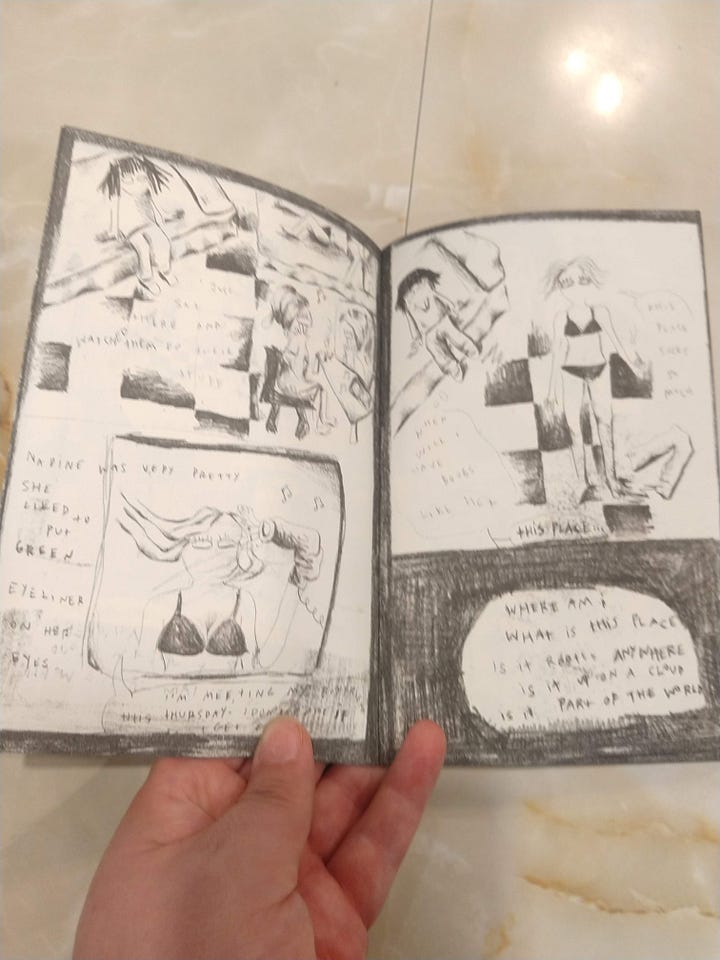 SAT
THERE AND
WATCH THEM DO
NADINE WAS VERY PRETTY
SHE
LIKED to
PUT
GREEN
EYELINER
ON HER
EYES
I'M MEETING MY
THIS THURSDAY. I DON'T
I GET
THIS
PLACE
SUCKS
SO
MUCH
WHEN
WILL I
HAVE
BOOBS
LIKE
tHIS PLACE...
WHERE AM i
WHAT iS tHiS PLACE
is it REALLY ANYWHERE
iS it UP ON A CLOUD
iS it PART OF tHE WORLD